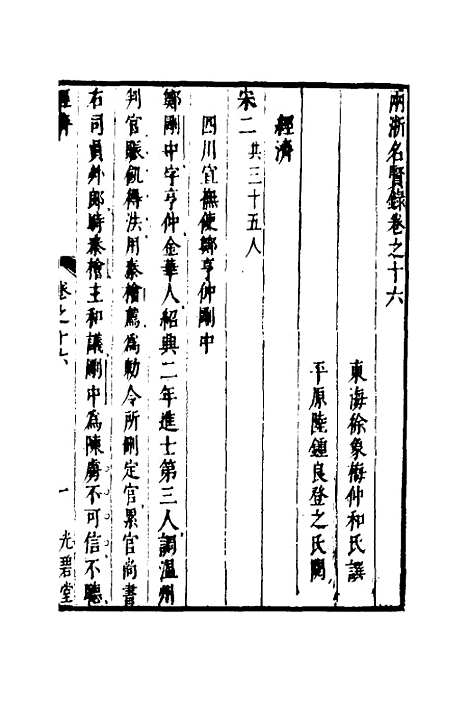 兩浙名賢錄卷之十六
東海徐象梅仲和氏譔
平原陸鍾良登之氏閱
經濟
宋二共三十五人
四川宣撫使鄭亨仲剛中
鄭剛中字亨仲金華人紹興二年進士第三人調溫州
判官賑飢得法用秦檜薦為勅令所刪定官累官尚書
右司員外郎時秦檜主和議剛中為陳虜不可信不聽
經濟
卷之十六
一
光碧堂